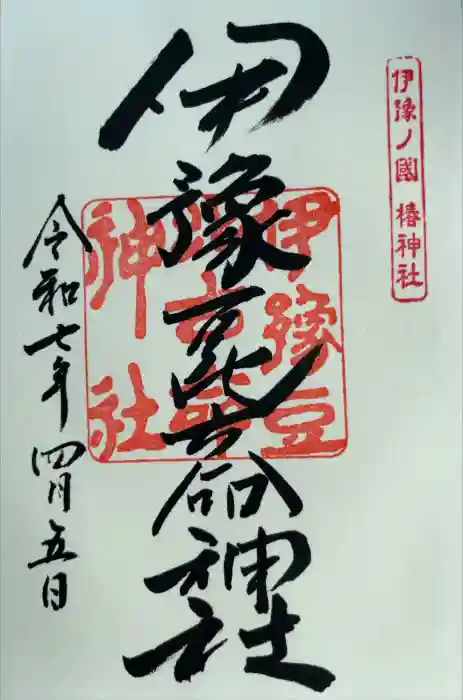 伊豫ノ國 椿神社
伊豫豆比古命神社
伊豫豆比古命神社
令和七年四月五日